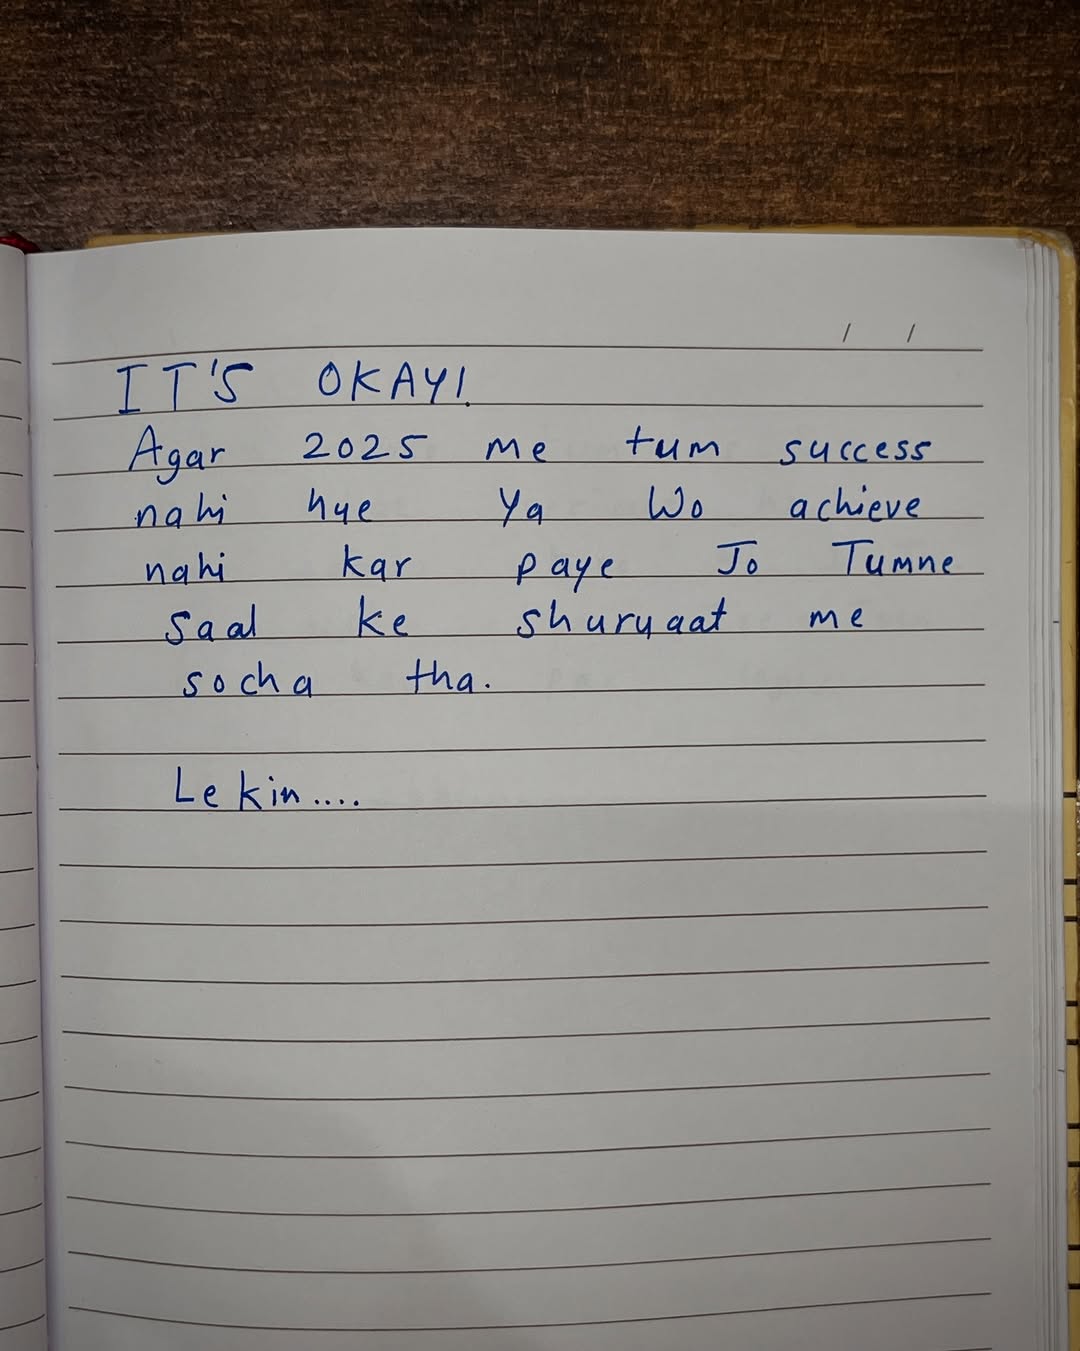 / /
IT'S OKAY!
Agar 2025 me tum success
nahi hue Ya Wo achieve
nahi kar paye Jo Tumne
saal ke shuruaat me
socha tha.
Lekin....